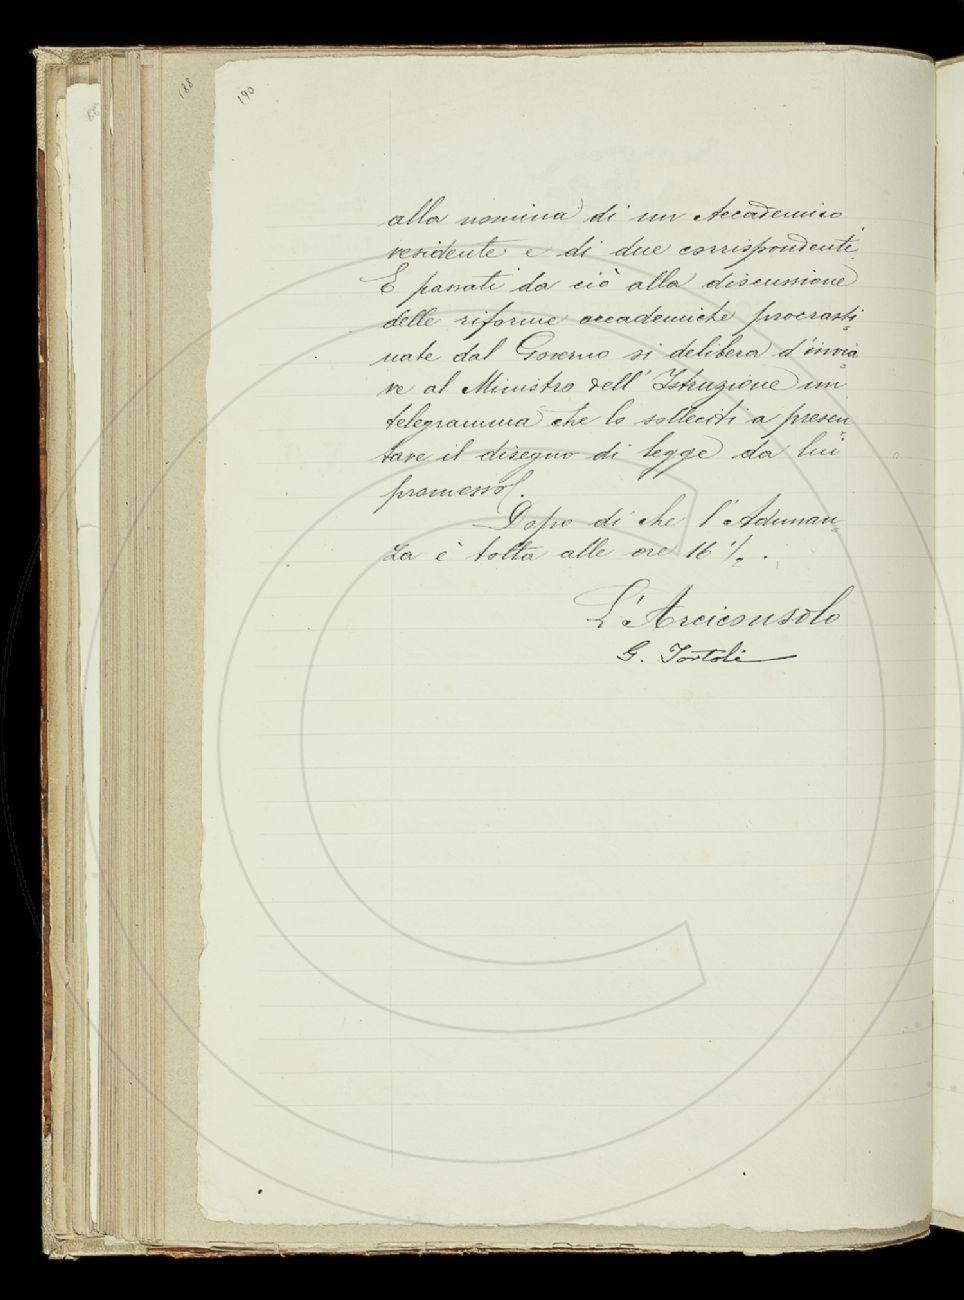 188
190
alla nomina di un Accademico
residente e di due corrispondenti.
E passati da ciò alla discussione
delle riforme accademiche procrasti=
nate dal Governo si delibera d'invia=
re al Ministro dell'Istruzione un
telegramma che lo solleciti a presen=
tare il disegno di legge da lui
promesso.
Dopo di che l'Adunan=
za è tolta alle ore 16 1/2.
L'Arciconsolo
G. Tortoli